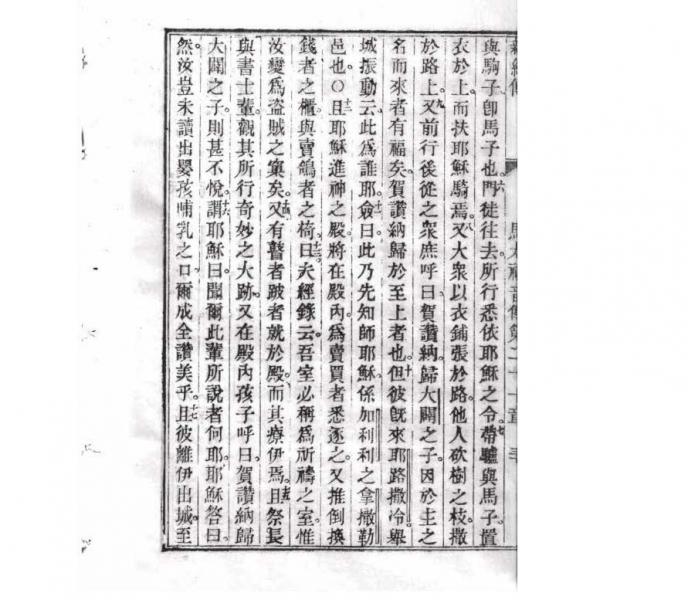 馬太福音傳第二十一章
與駒子卽馬子也。六門徒往去。所行悉依耶穌之令。七帶驢與馬子置
衣於上。而扶耶穌騎焉。八又大衆以衣鋪張於路。他人砍樹之枝。撒
於路上。九又前行後從之衆庶呼曰。賀讚納歸大闢之子。因於主之
名而來者有福矣。賀讚納歸於至上者也。十但彼旣來耶路撒冷。舉
城振動云。此爲誰耶。十一僉曰此乃先知師耶穌。係加利利之拿撒勒
邑也。○十二且耶穌進神之殿。將在殿內爲賣買者悉逐之。又推倒換
錢者之櫃與賣鴿者之椅。十三曰夫經錄云。吾室必稱爲祈禱之室。惟
汝變爲盜賊之窠矣。十四又有瞽者跛者就於殿。而其療伊焉。十五且祭長
與書士輩觀其所行奇妙之大跡。又在殿內孩子呼曰。賀讚納歸
大闢之子。則甚不悅。十六謂耶穌曰。聞爾此輩所說者何耶。耶穌答曰。
然汝豈未讀出嬰孩哺乳之口。爾成全讚美乎。十七且彼離伊出城。至